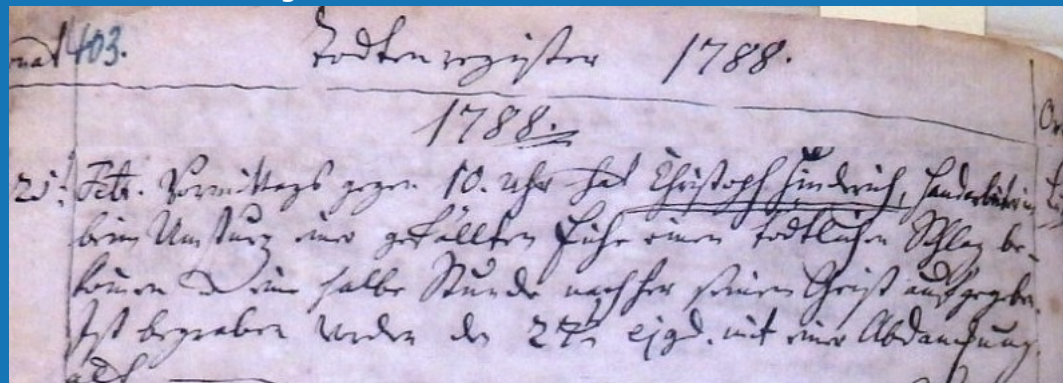 403. Todtenregister 1788.
1788.
25. Febr. Vormittags gegen 10. Uhr hat Christoph Hindrich, Handarbeiter
beim Umsturz einer gefällten Eiche einen todtlichen Schlag be-
kommen & eine halbe Stunde nachher seinen Geist aufgegeben.
Ist begraben worden den 27n ejsd. mit einer Abdanckung.